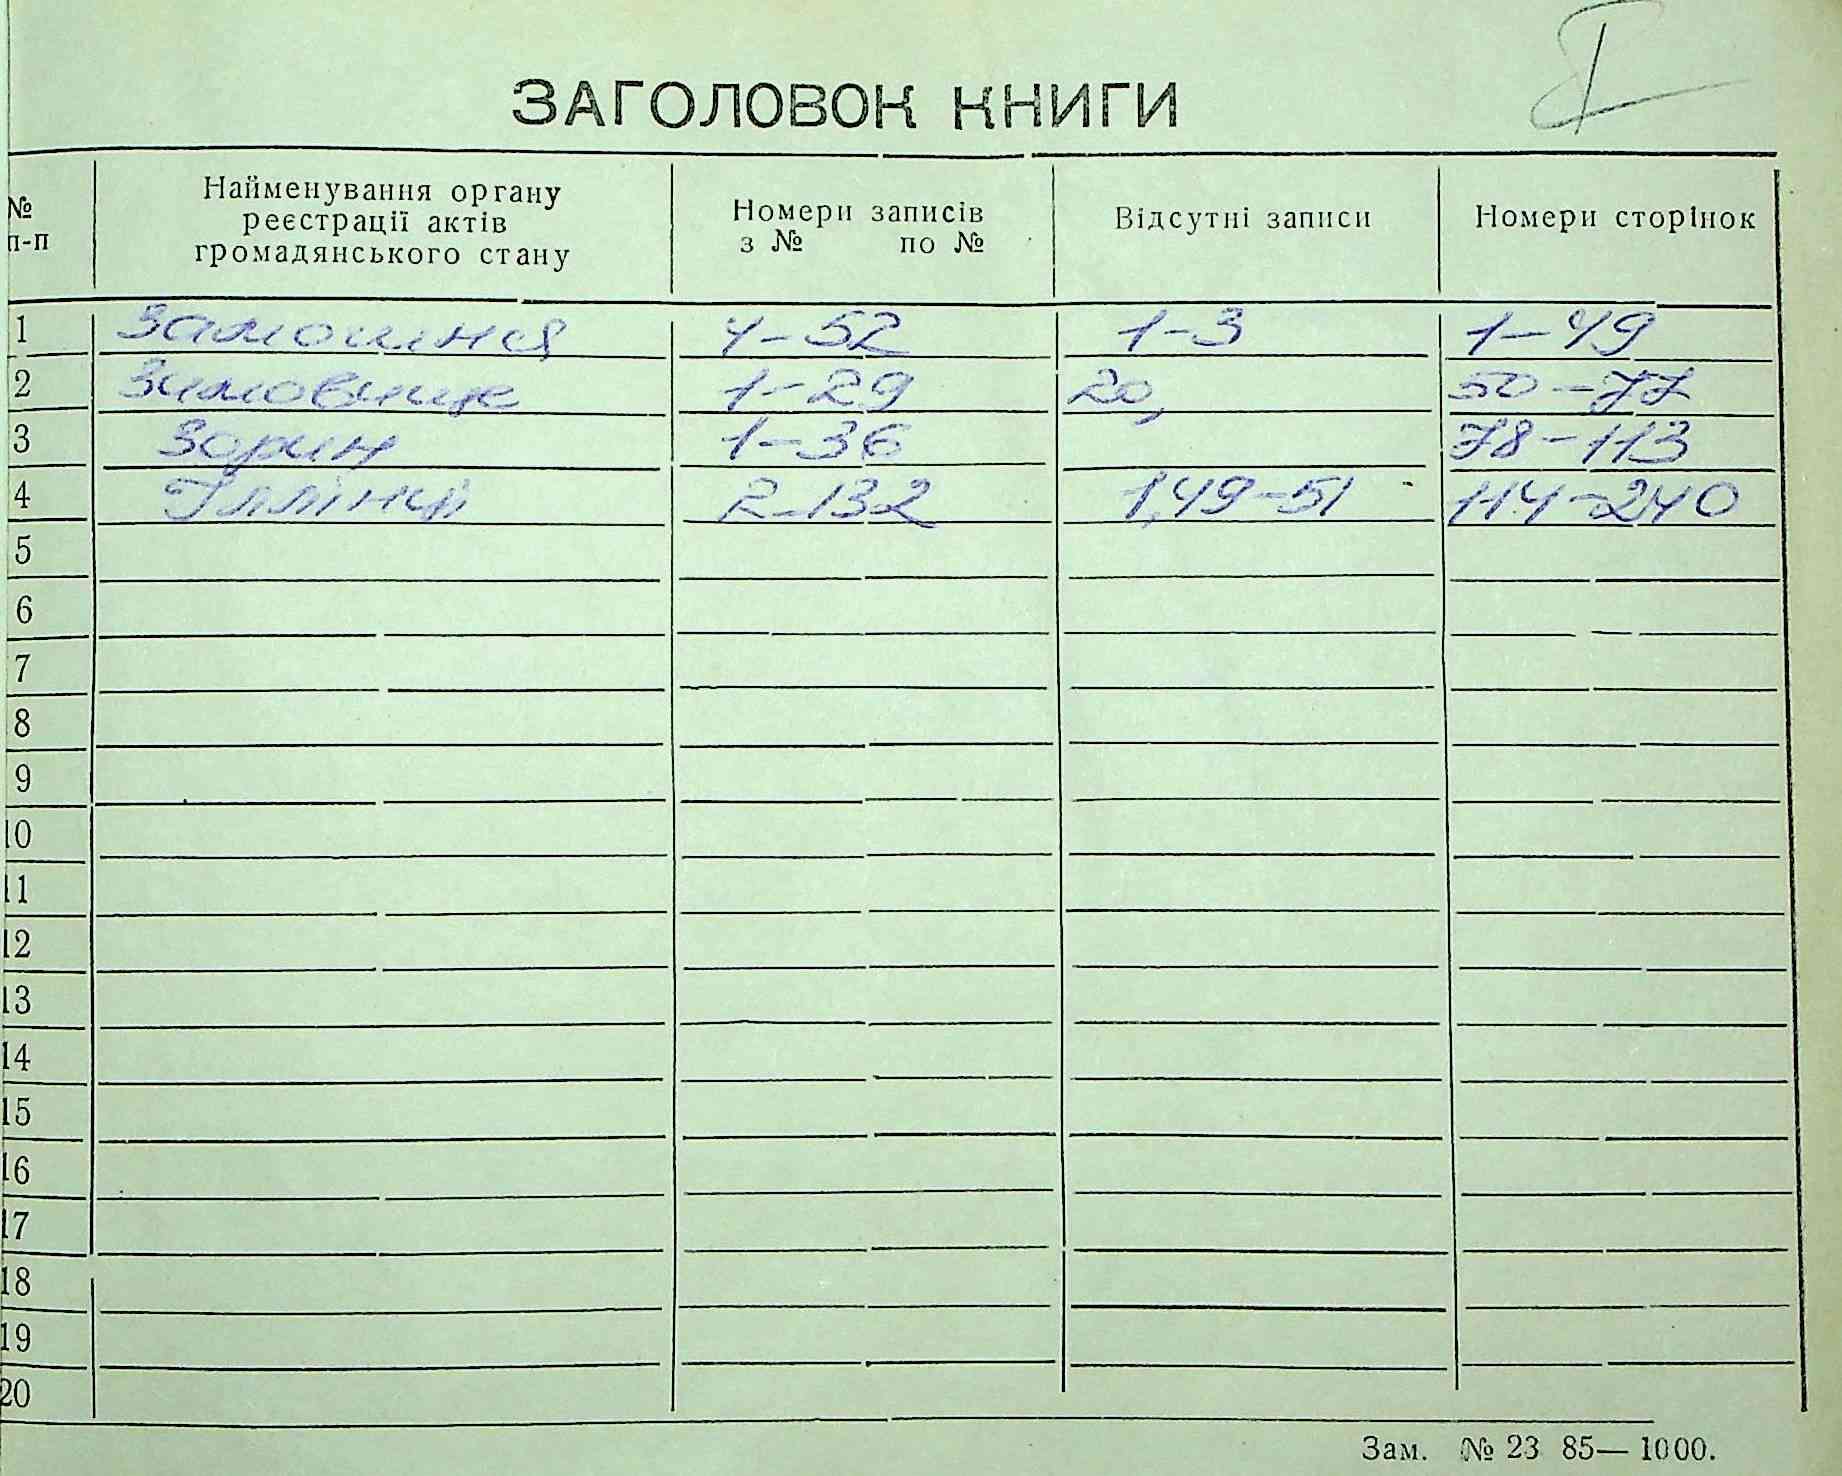 I
ЗАГОЛОВОК КНИГИ
№ п-п Найменування органу реєстрації актів громадянського стану Номери записів з № по № Відсутні записи Номери сторінок
1 Замошня 4-52 1-3 1-49
2 Зимовище 1-29 20, 50-77
3 Зорин 1-36 78-113
4 Іллінці 2-132 1,49-51 114-240
5
6
7
8
9
10
11
12
13
14
15
16
17
18
19
20
Зам. № 23 85— 1000.